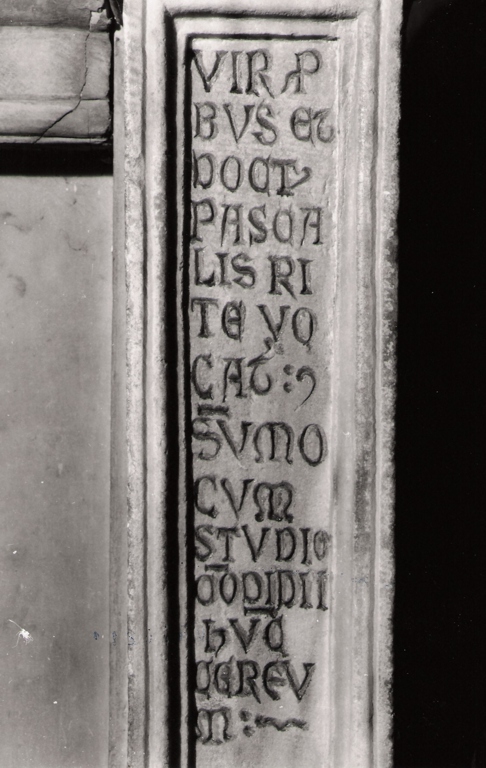 VIR P
BUS ET
DOCT
PASCA
LIS RI
TE VO
CAT :
SUMO
CUM
STUDIO
CODIDII
hUC
CEREU
M :~